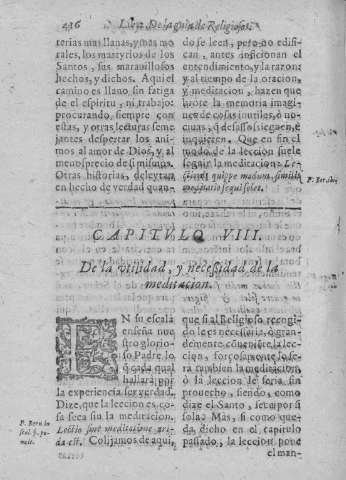 236 Lib. 2. De la guia de Religiosos.
terias mas llanas, y mas mo
rales, los martyrios de los
Santos, sus marauillosos
hechos, y dichos. Aqui el
camino es llano, sin fatiga
de el espiritu, ni trabajo:
procurando, siempre con
estas, y otras lecturas seme
jantes despertar los ani-
mos al amor de Dios, y al
menosprecio de si mismos.
Otras historias, deleytan
en hecho de verdad quan-
do se leen, pero no edifi-
can, antes aficionan el
entendimiento, y la razon
y al tiempo de la oracion,
y meditacion, hazen que
brote la memoria imagi-
nes de cosas inutiles, ò no-
ciuas, q̃ desassosiegan, è
inquieten. Que en fin el
modo de la leccion suele
seguir la meditacion: Le-
ctionis quippe modum, similis
meditatio sequi solet.
P. Ber. ibi.
CAPITVLO VIII.
De la vtilidad, y necesidad de la
meditacion.
EN su escala
enseña nue
stro glorio-
so Padre, lo
q̃ cada qual
hallarà por
la experiencia ser verdad.
Dize, que la leccion es co-
sa seca sin la meditacion.
Lectio sine meditatione ari-
da est. Colijamos de aqui,
P. Bern. in
scal. §. pe-
nult.
que si al Religioso recogi-
do le es necessaria, ò gran-
demente conueniẽte la lec-
cion, forçosamente lo se-
rà tambien la meditacion,
ò la leccion le seria sin
prouecho, siendo, como
dize el Santo, seca por si
sola? Mas, si como que-
da, dicho en el capitulo
passado, la leccion pone
el man-